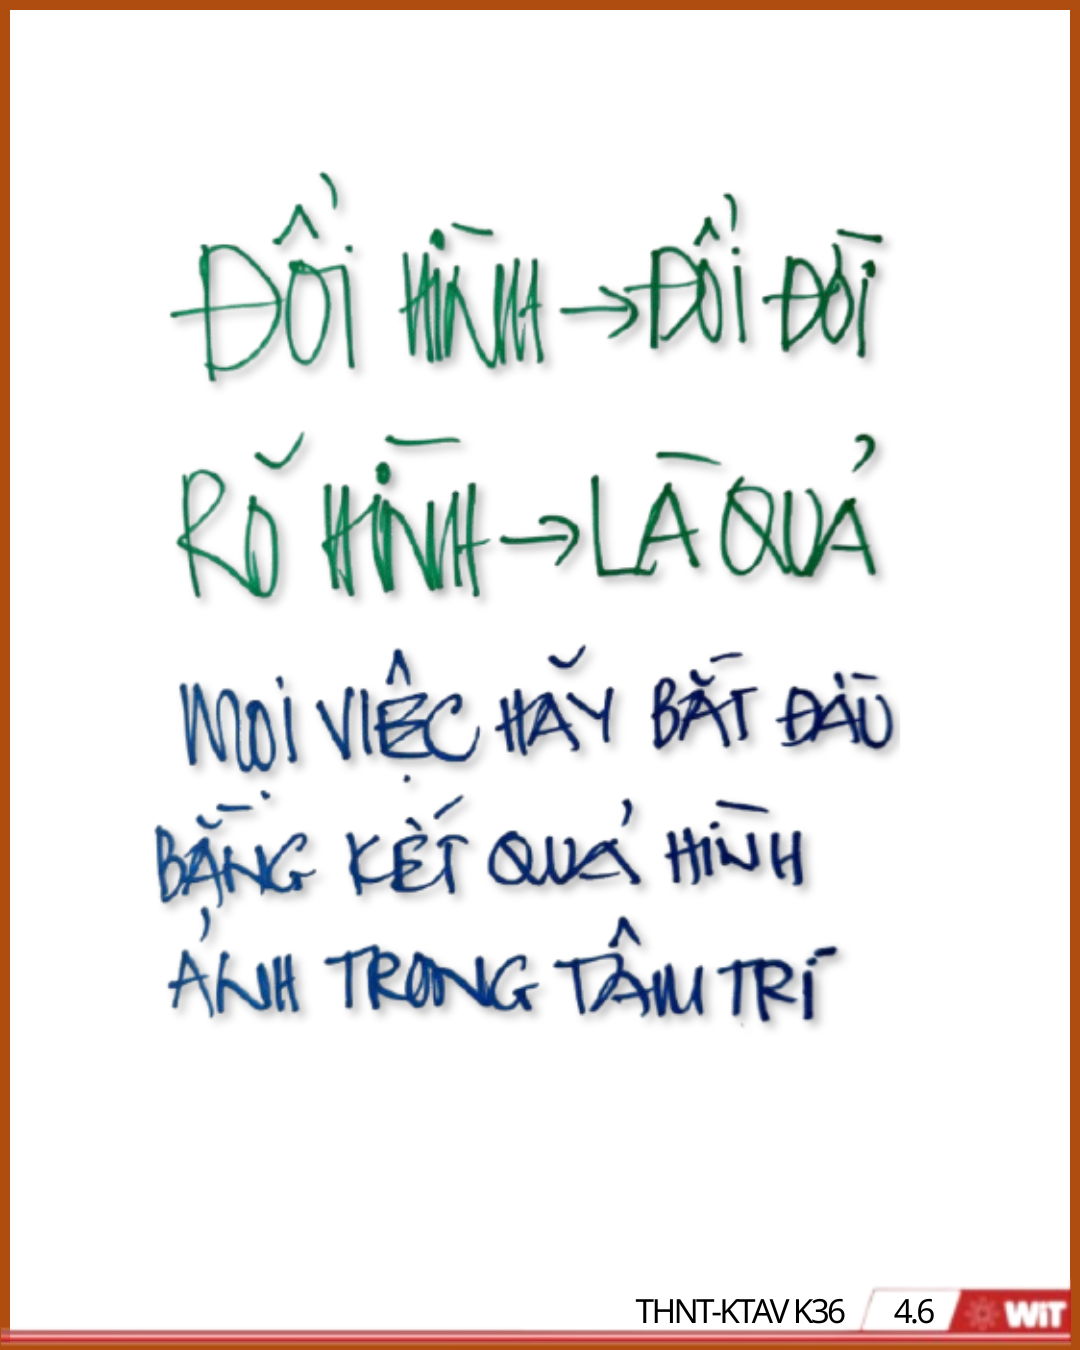 ĐỔI HÌNH → ĐỔI ĐỜI
RÕ HÌNH → LÀ QUẢ
MỌI VIỆC HÃY BẮT ĐẦU
BẰNG KẾT QUẢ HÌNH
ẢNH TRONG TÂM TRÍ
THNT-KTAV K36 4.6 WiT